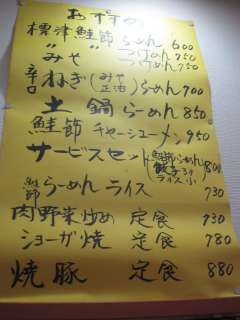 おすすめ
標津鮭節らーめん 600
〃 〃 つけめん 750
みそ つけめん 750
辛口ねぎ(みそ 正油)らーめん 700
土鍋らーめん 850
鮭節チャーシューメン 950
サービスセット(鮭節らーめん 餃子3ケ ライス小) 800
鮭節らーめんライス 730
肉野菜炒め 定食 730
ショーガ焼 定食 780
焼豚 定食 880